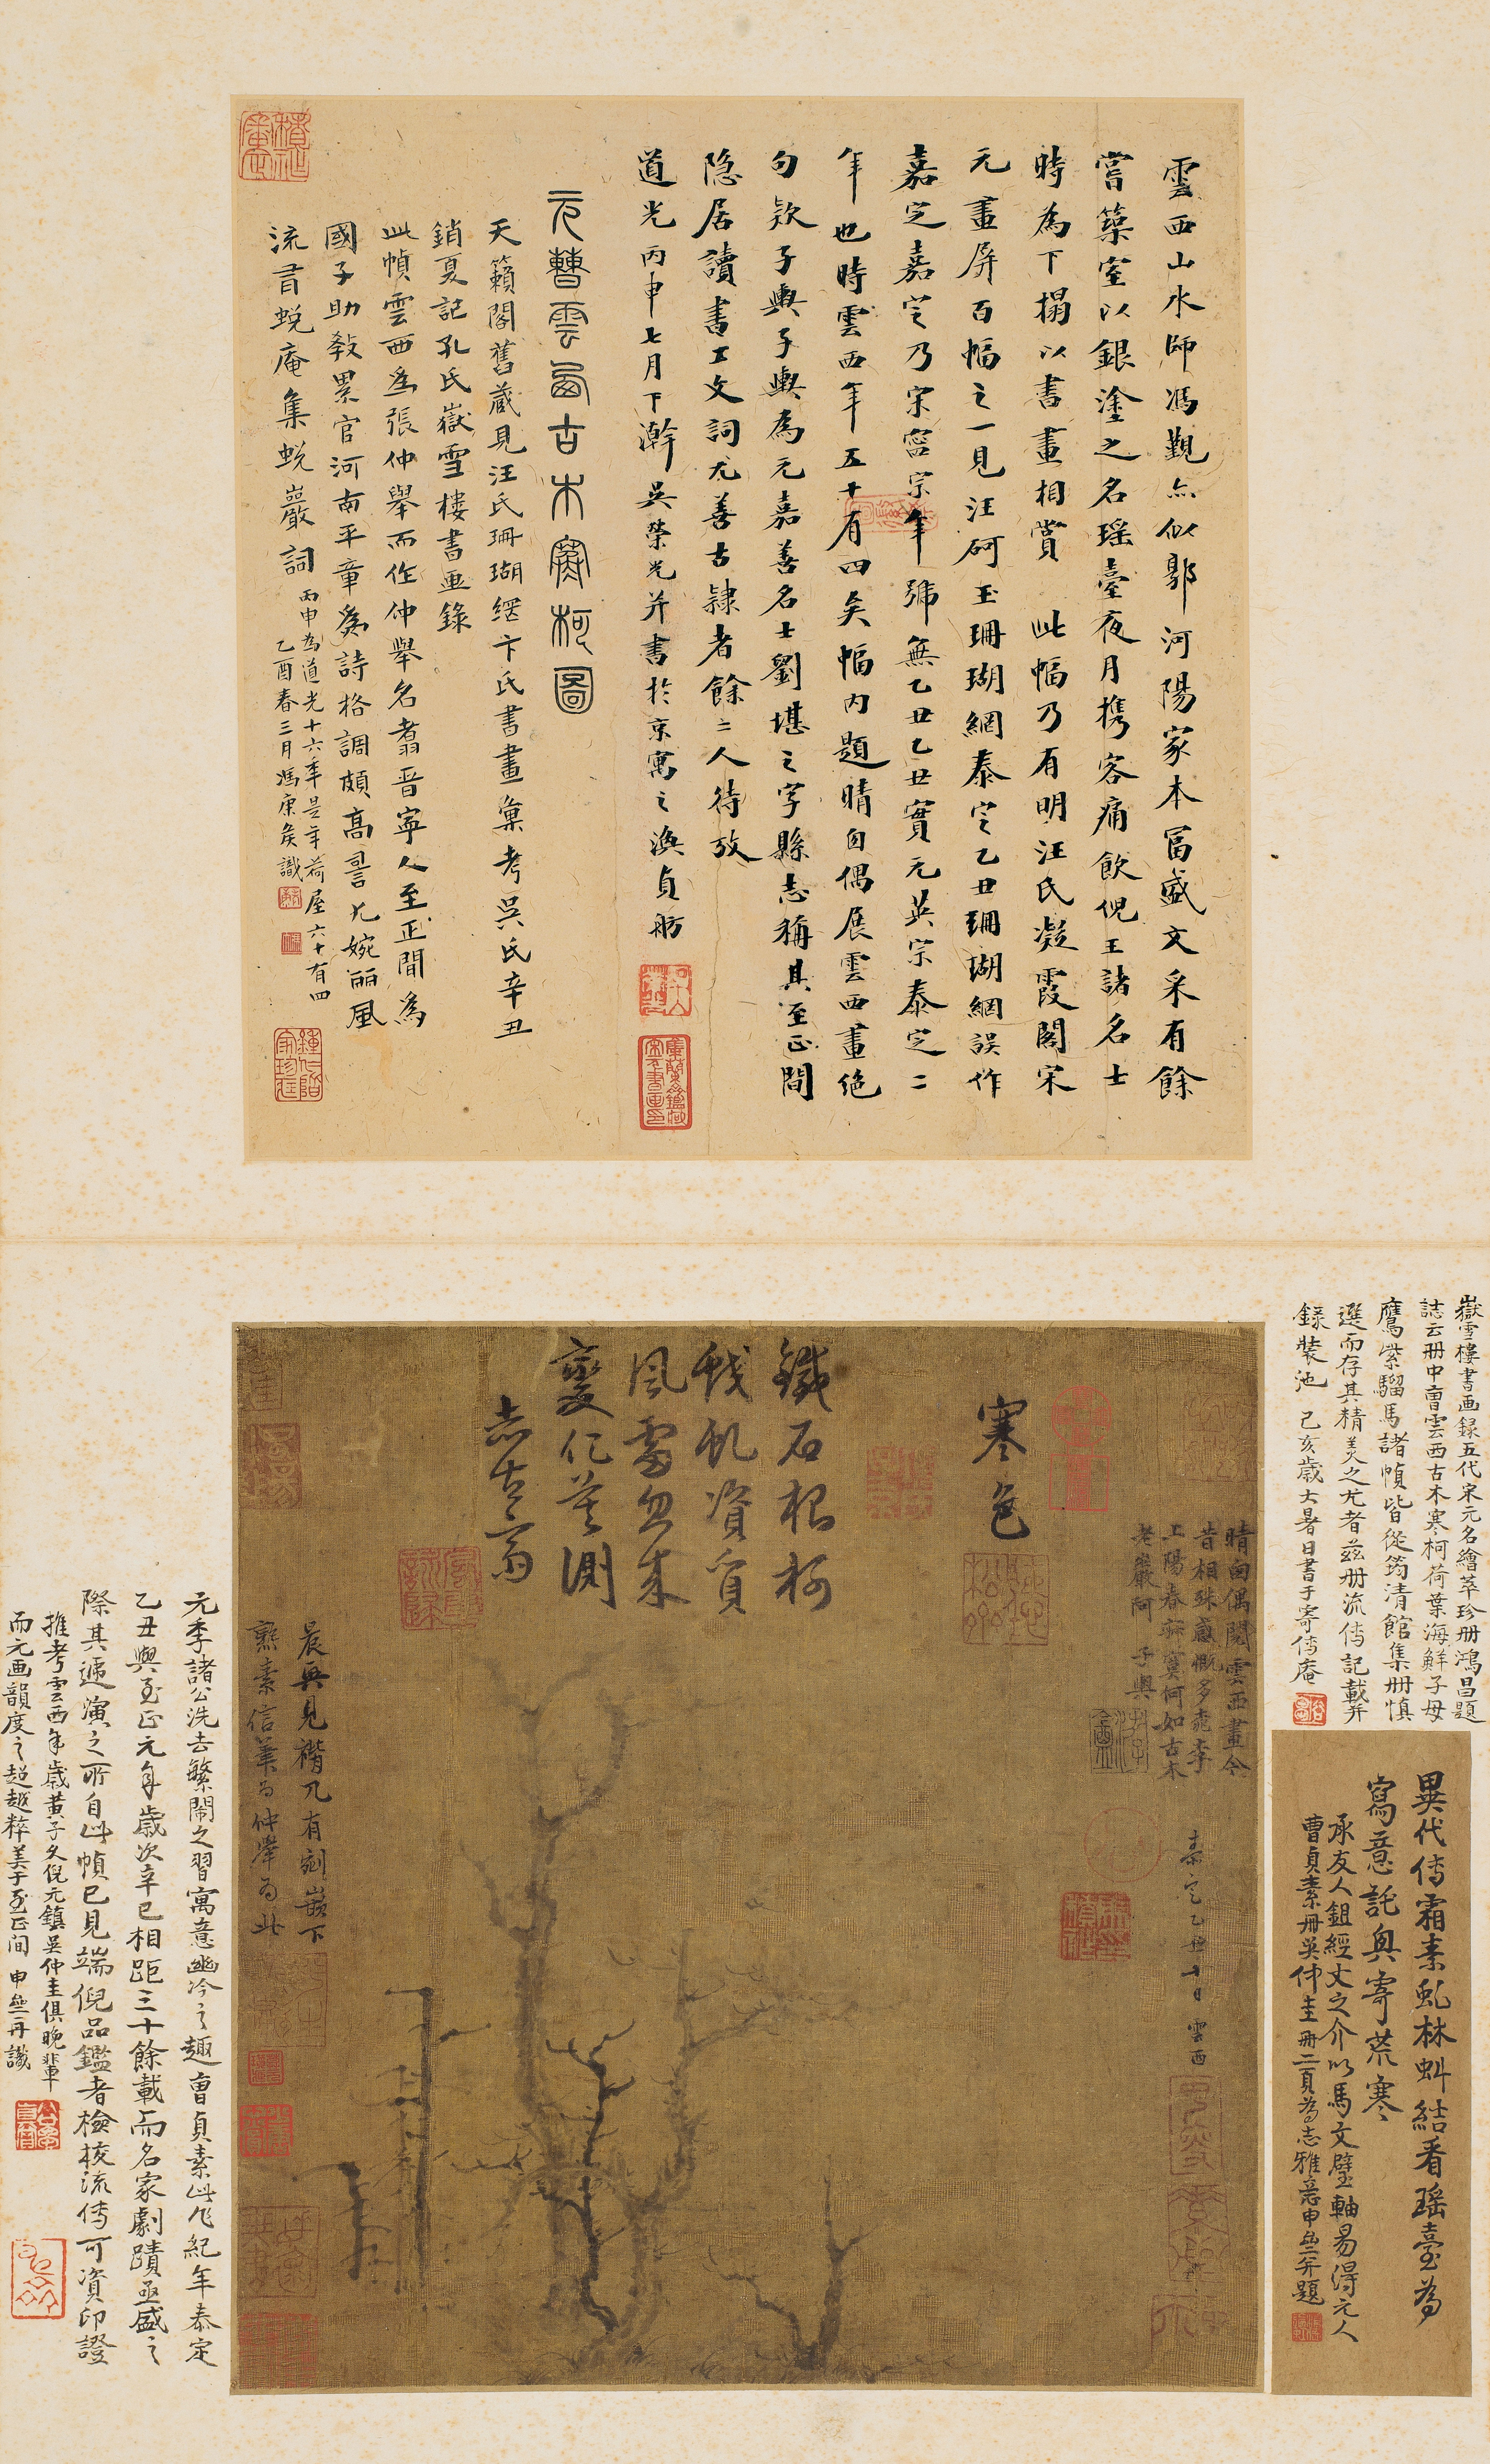 雲西山水師馮覲亦似郭河陽家本富盛文采有餘
嘗築室以銀塗之名瑶臺夜月携客痛飲倪王諸名士
時為下榻以書畫相賞 此幅乃有明汪氏凝霞閣宋
元畫屏百幅之一見汪砢玉珊瑚網泰定乙丑珊瑚網誤作
嘉定嘉定乃宋寧宗年號無乙丑乙丑實元英宗泰定二
年也時雲西年五十有四矣幅内題晴囱偶展雲西畫絶
句欵子輿子輿為元嘉善名士劉堪之字縣志稱其至正間
隐居讀書工文詞尤善古隸者餘二人待攷
道光丙申七月下澣吳榮光并書於京寓之瀛貞舫
元曹雲西古木寒柯圖
天籟閣舊藏見汪氏珊瑚網卞氏書畫彙考吳氏辛丑
銷夏記孔氏嶽雪樓書画錄
此幀雲西為張仲舉而作仲舉名翥晋寧人至正間為
國子助教累官河南平章為詩格調頗高詞尤婉麗風
流有蜕庵集蜕巖詞
丙申為道光十六年是年荷屋六十有四
乙酉春三月馮康矦識
嶽雪樓書画録五代宋元名繪萃珍册鴻昌題
誌云册中曹雲西古木寒柯荷葉海鮮子母
鷹紫騮馬諸幀皆從筠清館集册慎
選而存其精美之尤者兹册流傳記載并
録裝池 己亥歲大暑日書于寄傳庵
異代傳霜素虬林虯結看瑶臺為
寫意託與寄荒寒
承友人鉏經丈之介以馬文璧軸易得元人
曹貞素册吳仲圭册二頁為志雅意申並題
寒色
鐵石根柯
戟虬資質
風雷忽來
變化莫測
志古齋
晴囱偶閲雲西畫今
昔相殊感慨多桃李
工陽春寂寞何如古木
老巖阿 子輿
泰定乙丑十日雲西
晨興見褙几有剡巖下
熟素信筆為仲舉為此
元季諸公洗去繁鬧之習寓意幽冷之趣曹貞素此作紀年泰定
乙丑與至正元年歲次辛巳相距三十餘載而名家劇蹟亟盛之
際其遞演之所自此幀已見端倪品鑑者檢校流傳可資印證
推考雲西年歲黄子久倪元鎮吳仲圭俱晚輩
而元画韻度之超越粹美于至正间 申並再識